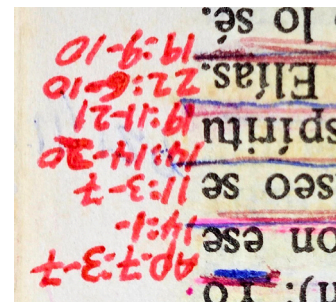 n): Yo
on ese
seo se
spíritu
Elías.
lo sé.
Ap.7:3-7
14:1-
11:3-7
14:14-20
19:11-21
22:6-10
19:9-10